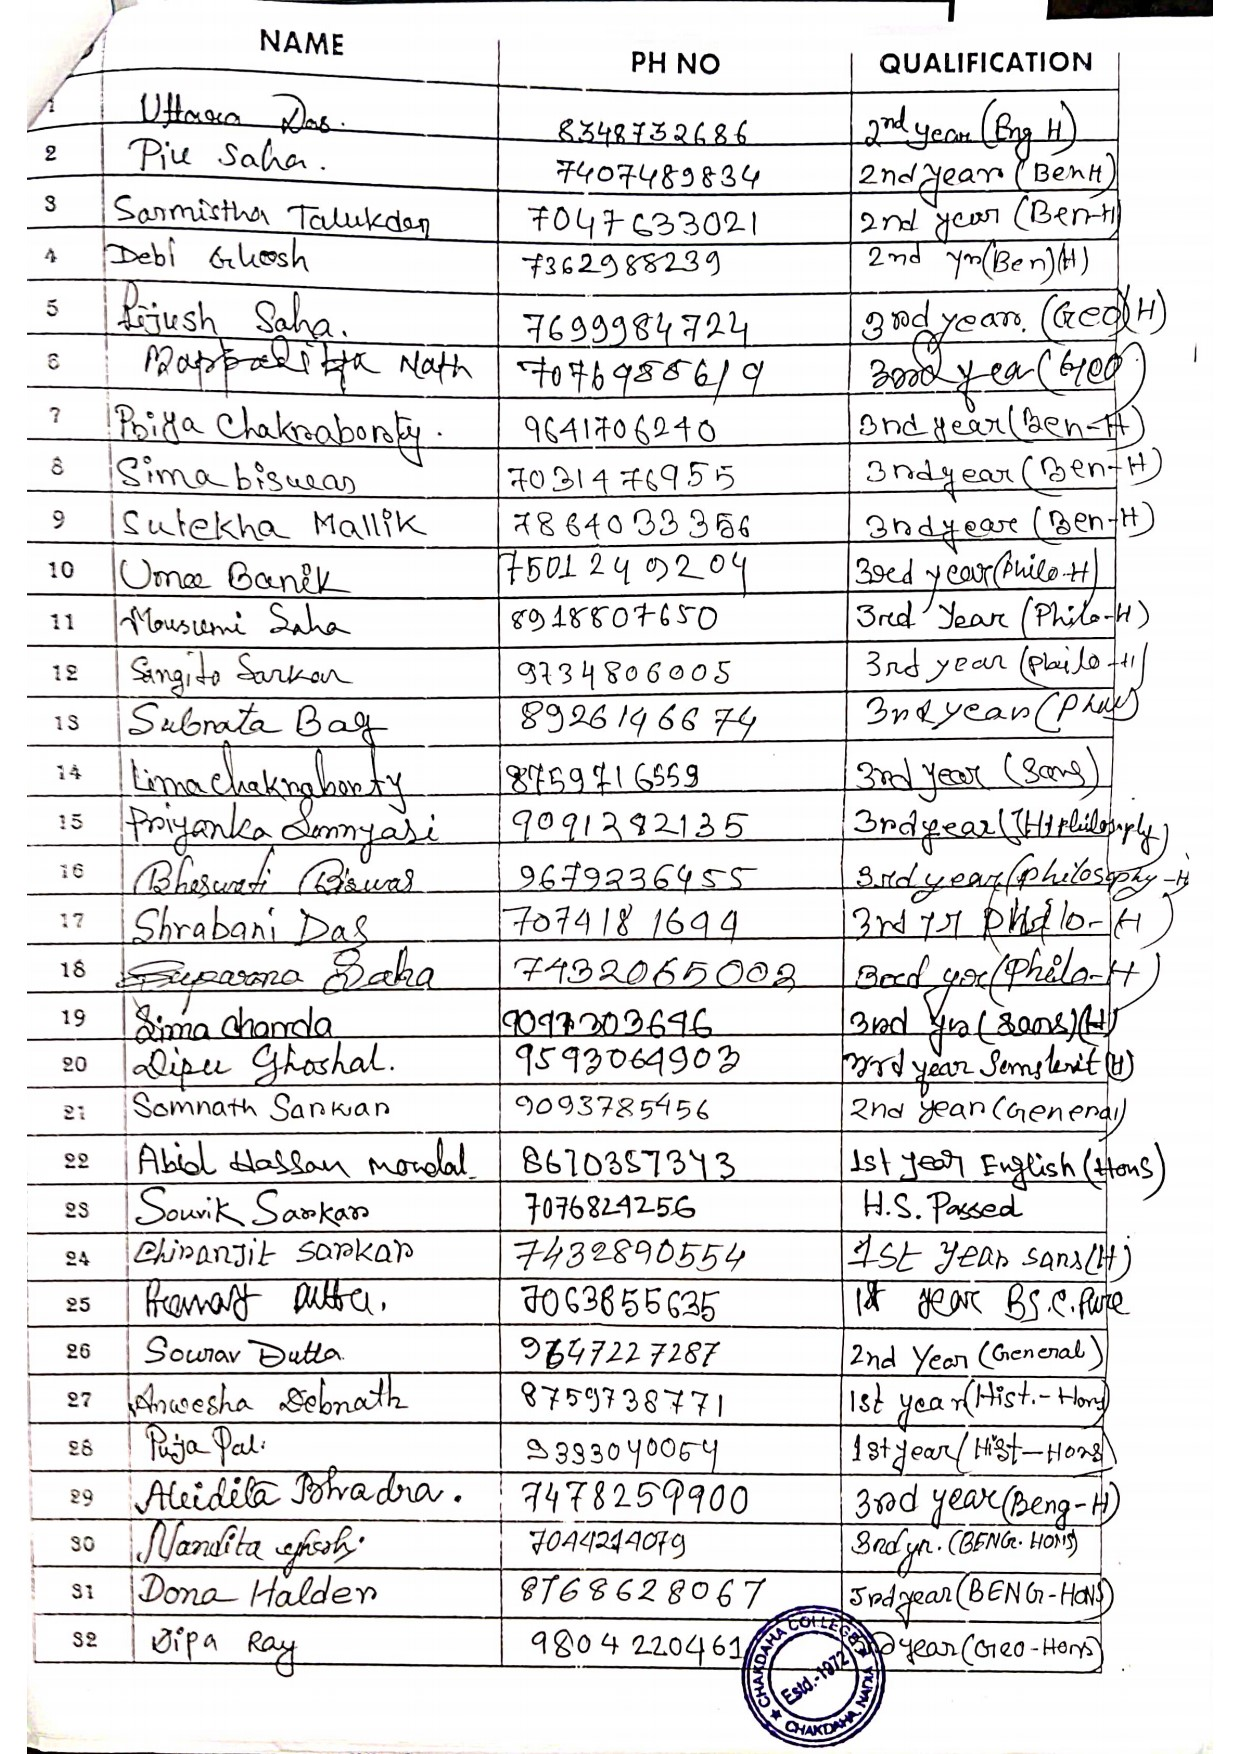 NAME PH NO QUALIFICATION
1 Uttara Das. 8348732686 2nd year (Eng H)
2 Piu Saha. 7407489834 2nd year (Ben H)
3 Sarmistha Talukdar 7047633021 2nd year (Ben-H)
4 Debi Ghosh 7362988239 2nd yr (Ben)(H)
5 Pijush Saha. 7699984724 3rd year. (Geo)(H)
6 Nath 3rd year (Geo)
7 Priya Chakraborty. 9641706240 3rd year (Ben-H)
8 Sima biswas 7031476955 3rd year (Ben-H)
9 Sulekha Mallik 7864033356 3rd year (Ben-H)
10 Uma Banik 7501249204 3rd year (Philo-H)
11 Mousumi Saha 8918807650 3rd Year (Philo-H)
12 Sangita Sarkar 9734806005 3rd year (Philo-H)
13 Subrata Bag 8926146674 3rd year
14 Lima Chakraborty 8759716559 3rd year (Sans)
15 Priyanka Sannyasi 9091282135 3rd year (H) Philosophy)
16 Bhaswati Biswas 9679236455 3rd year (Philosophy-H
17 Shrabani Das 7074181694 3rd yr Philo-H)
18 Suparna Saha 7432065002 3rd yr (Philo-H)
19 Sima chanda 9097303646 3rd yr (Sans)(H)
20 Dipu Ghoshal. 9593064903 3rd year (H)
21 Somnath Sarkar 9093785456 2nd year (General)
22 Abid Hassan Mondal 8670357343 1st year English (Hons)
23 Souvik Sarkar 7076824256 H.S. Passed
24 Chiranjit Sarkar 7432890554 1st year sans (H)
25 Dutta. 7063855635 1st year BS.C. Pure
26 Sourav Dutta 9647227287 2nd Year (General)
27 Anwesha Debnath 8759738771 1st year (Hist.-Hons)
28 Puja Pal. 9333040064 1st year (Hist-Hons)
29 Bhadra. 7478259900 3rd year (Beng-H)
30 Nandita Ghosh. 7044214079 3rd yr. (BENG. HONS)
31 Dona Halder 8768628067 3rd year (BENG-HONS)
32 Dipa Ray 9804220461 3rd year (Geo-Hons)
CHAKDAHA COLLEGE
Estd.-1972
CHAKDAHA, NADIA